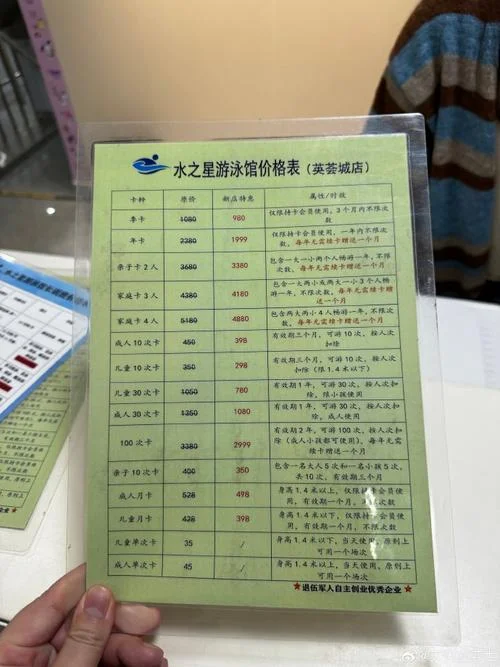 水之星游泳馆价格表(英荟城店)
卡种 原价 新店特惠 属性/时效
季卡 1080 980 仅限持卡会员使用,3个月内不限次数
年卡 2380 1999 仅限持卡会员使用,一年内不限次数,每年无需续卡赠送一个月
亲子卡2人 3680 3380 包含一大一小两个人畅游一年,不限次数,每年无需续卡赠送一个月
家庭卡3人 4380 4180 包含一大两小或两大一小3个人畅游一年,不限次数,每年无需续卡赠送一个月
家庭卡4人 5180 4880 包含两大两小4人畅游一年,不限次数,每年无需续卡赠送一个月
成人10次卡 450 398 有效期三个月,可游10次,按人次扣除
儿童10次卡 350 298 有效期三个月,可游10次,按人次扣除(限1.4米以下)
儿童30次卡 1050 780 有效期1年,可游30次,按人次扣除,限小孩使用
成人30次卡 1350 1080 有效期1年,可游30次,按人次扣除,成人使用
100次卡 3380 2999 有效期2年,可游100次,按人次扣除(成人小孩都可使用),每年无需续卡赠送一个月
亲子10次卡 400 350 包含一名大人5次和一名小孩5次,共10次,有效期三个月
成人月卡 528 498 身高1.4米以上,仅限持卡会员使用,有效期一个月,不限次数
儿童月卡 428 398 身高1.4米以下,仅限持卡会员使用,有效期一个月,不限次数
儿童单次卡 35 / 身高1.4米以下,当天使用,原则上可用一个场次
成人单次卡 45 / 身高1.4米以上,当天使用,原则上可用一个场次
★退伍军人自主创业优秀企业★